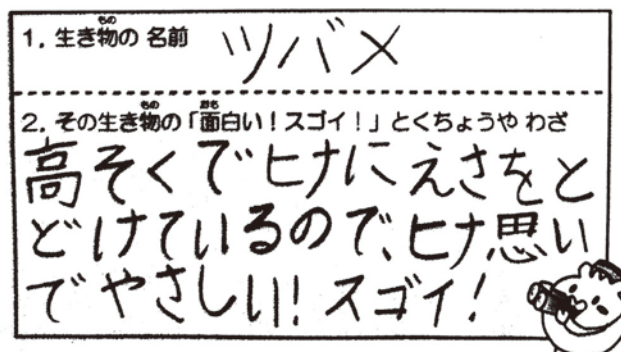 1. 生き物の 名前 ツバメ
2. その生き物の「面白い！スゴイ！」とくちょうや わざ
高そくでヒナにえさをと
どけているので、ヒナ思い
でやさしい！スゴイ！